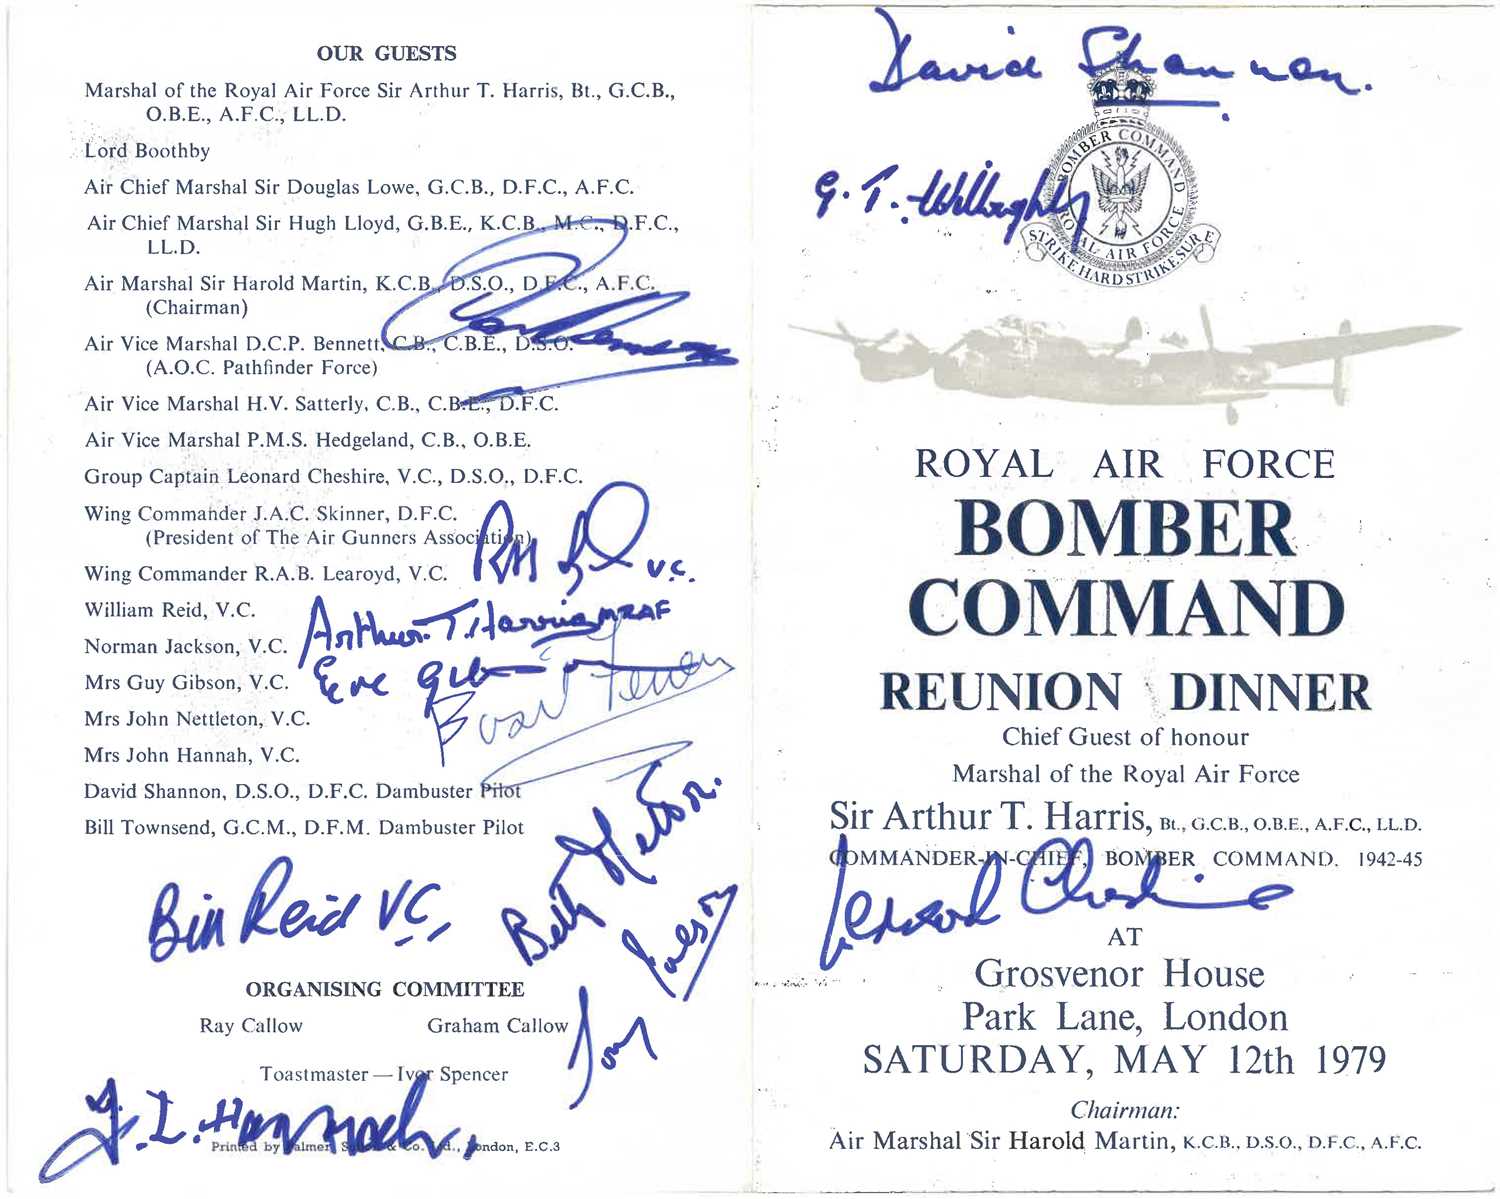 OUR GUESTS
Marshal of the Royal Air Force Sir Arthur T. Harris, Bt., G.C.B.,
O.B.E., A.F.C., LL.D.
Lord Boothby
Air Chief Marshal Sir Douglas Lowe, G.C.B., D.F.C., A.F.C.
Air Chief Marshal Sir Hugh Lloyd, G.B.E., K.C.B., M.C., D.F.C.,
LL.D.
Air Marshal Sir Harold Martin, K.C.B., D.S.O., D.F.C., A.F.C.
(Chairman)
Air Vice Marshal D.C.P. Bennett, C.B., C.B.E., D.S.O.
(A.O.C. Pathfinder Force)
Air Vice Marshal H.V. Satterly, C.B., C.B.E., D.F.C.
Air Vice Marshal P.M.S. Hedgeland, C.B., O.B.E.
Group Captain Leonard Cheshire, V.C., D.S.O., D.F.C.
Wing Commander J.A.C. Skinner, D.F.C.
(President of The Air Gunners Association)
Wing Commander R.A.B. Learoyd, V.C.
V.C.
William Reid, V.C.
Arthur T. Harris MRAF
Norman Jackson, V.C.
Eve Gibson
Mrs Guy Gibson, V.C.
Mrs John Nettleton, V.C.
Mrs John Hannah, V.C.
David Shannon, D.S.O., D.F.C. Dambuster Pilot
Bill Townsend, G.C.M., D.F.M. Dambuster Pilot
Bill Reid VC.
Betty
ORGANISING COMMITTEE
Ray Callow Graham Callow
Toastmaster — Ivor Spencer
J. I. Hannah.
Printed by Palmer, & Co. Ltd., London, E.C.3
David Shannon.
G. T. Willoughby
BOMBER COMMAND
ROYAL AIR FORCE
STRIKE HARD STRIKE SURE
ROYAL AIR FORCE
BOMBER
COMMAND
REUNION DINNER
Chief Guest of honour
Marshal of the Royal Air Force
Sir Arthur T. Harris, Bt., G.C.B., O.B.E., A.F.C., LL.D.
COMMANDER-IN-CHIEF, BOMBER COMMAND. 1942-45
Leonard Cheshire
AT
Grosvenor House
Park Lane, London
SATURDAY, MAY 12th 1979
Chairman:
Air Marshal Sir Harold Martin, K.C.B., D.S.O., D.F.C., A.F.C.